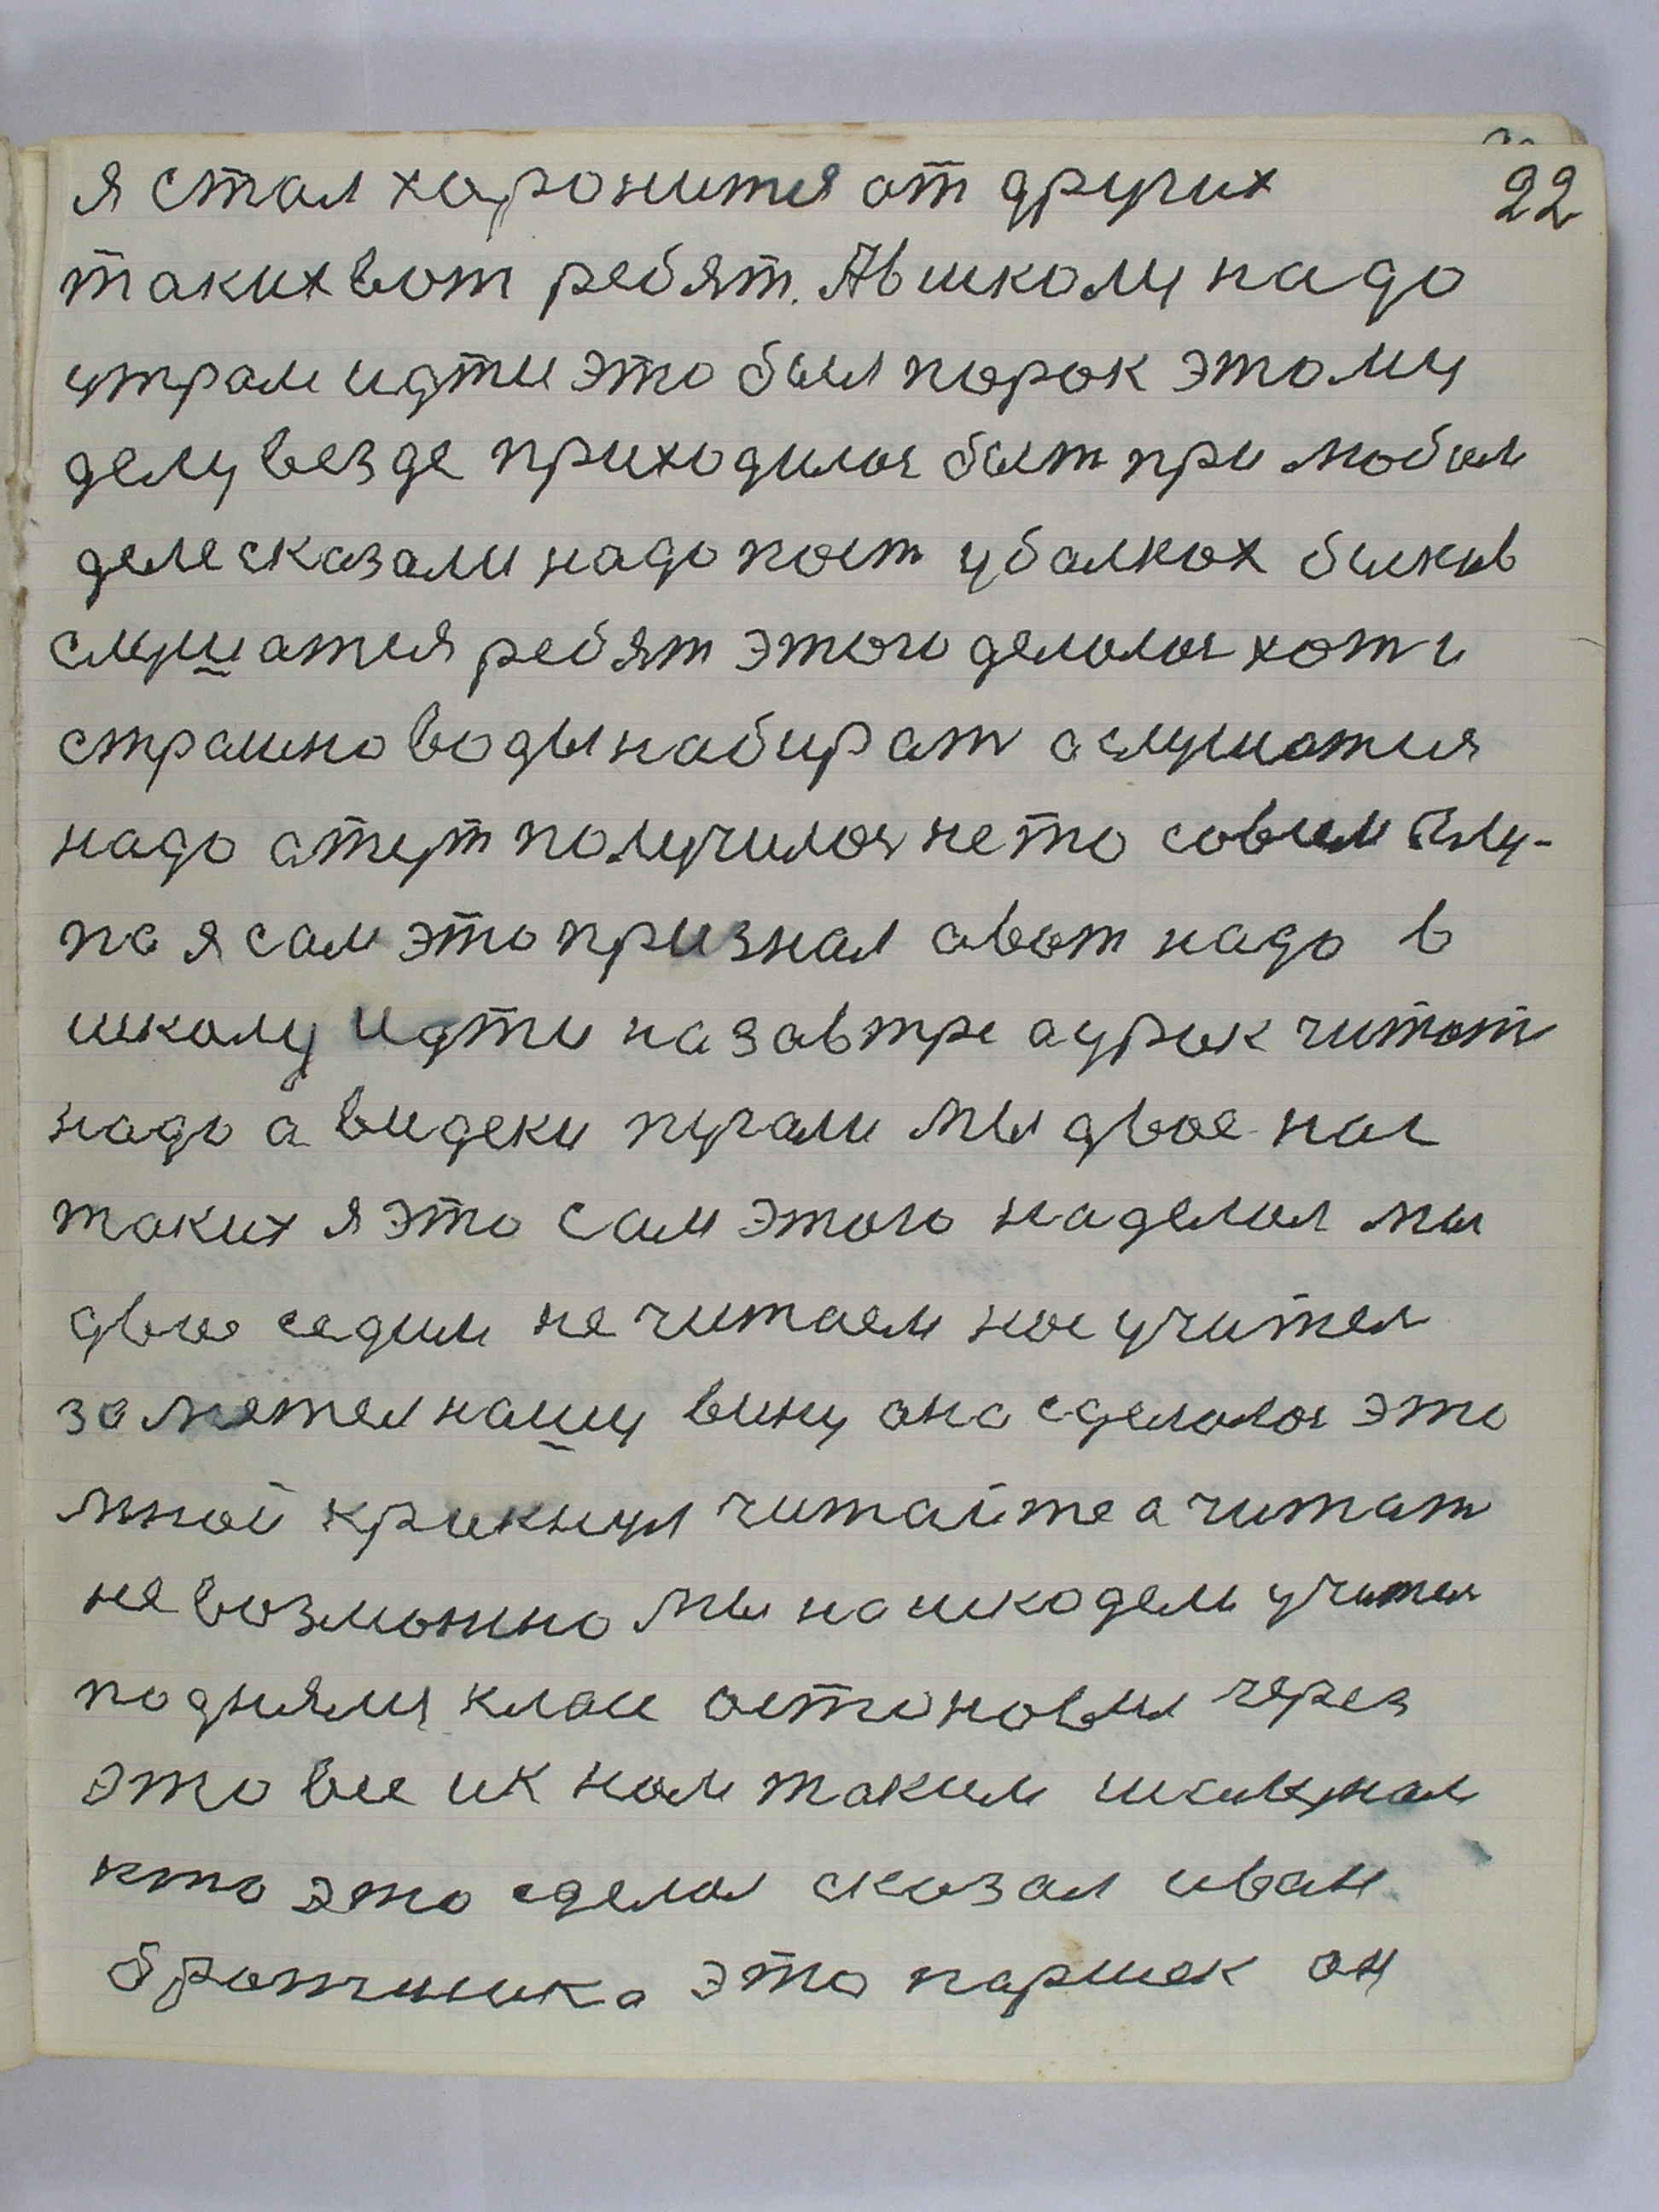 22
я стал харонится от других
таких вот ребят. А в школу надо
утрам идти это был порок этому
делу везде приходилос быт при любым
деле сказали надо поит у балках быков
слушатся ребят этого делалос хот и
страшно воды набират а слушатся
надо а тут получилос не то совсем глу-
па я сам это признал а вот надо в
школу идти назавтре а урок читат
надо а видеки пугали мы двое нас
таких я это сам этого наделал мы
двое седим не читаем нас учител
заметел нашу вину она сделалос это
мной крикнул читайте а читат
не возможно мы нашкодели учител
поднялся клас остоновил через
это все ик нам таким
кто это сделал сказал иван
братишка это паршек он